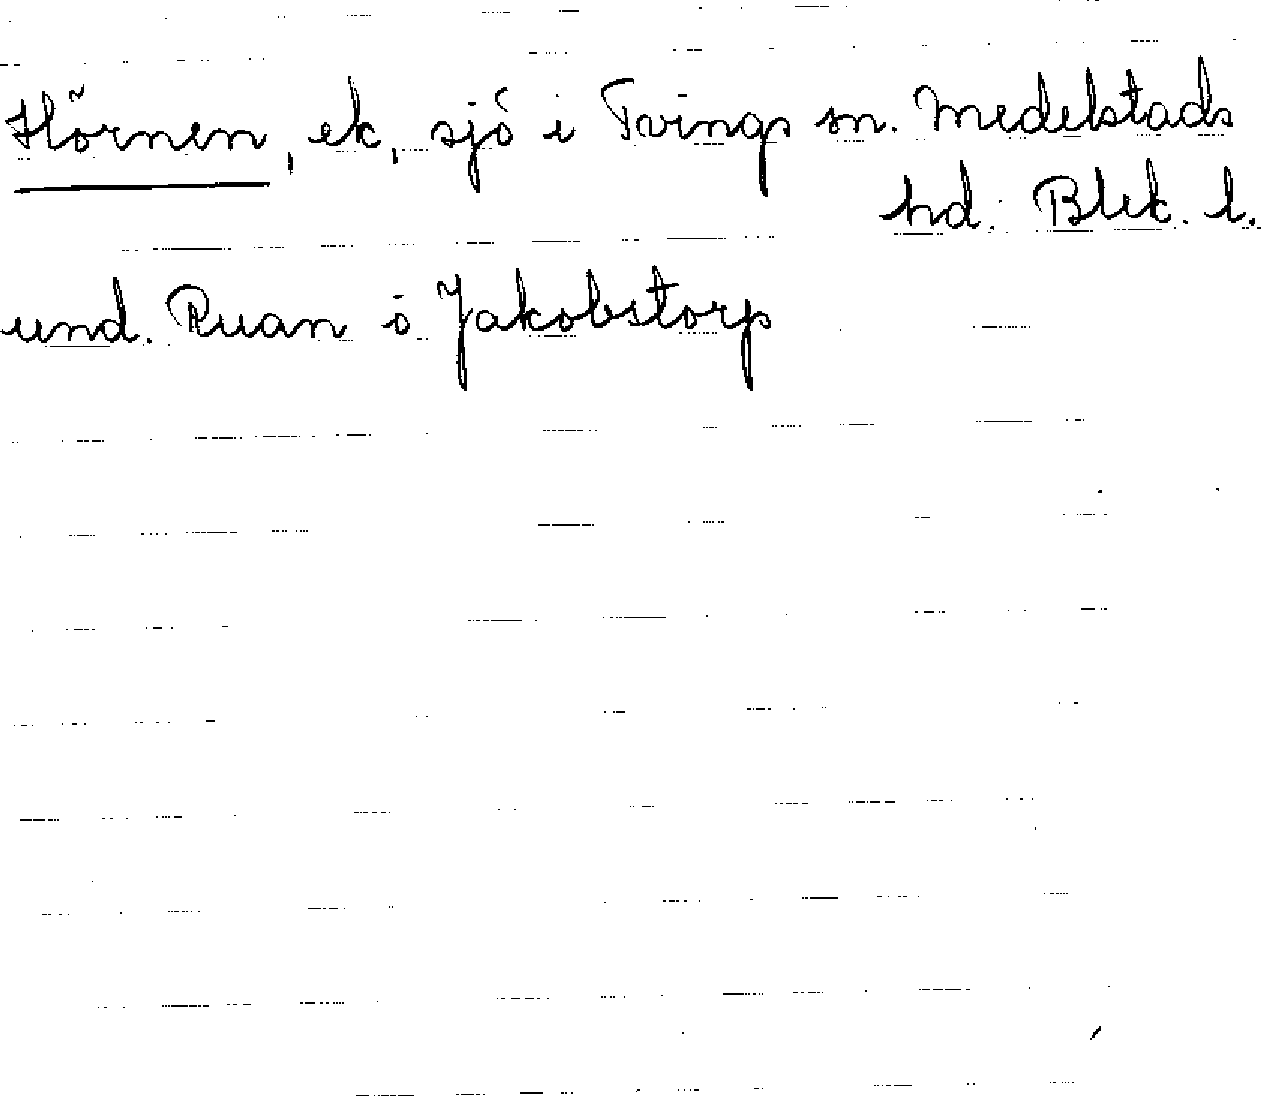 Hörnen, ek, sjö i Tvings sn. Medelstads
hd. Blek. l.
und. Ruan ö Jakobstorp